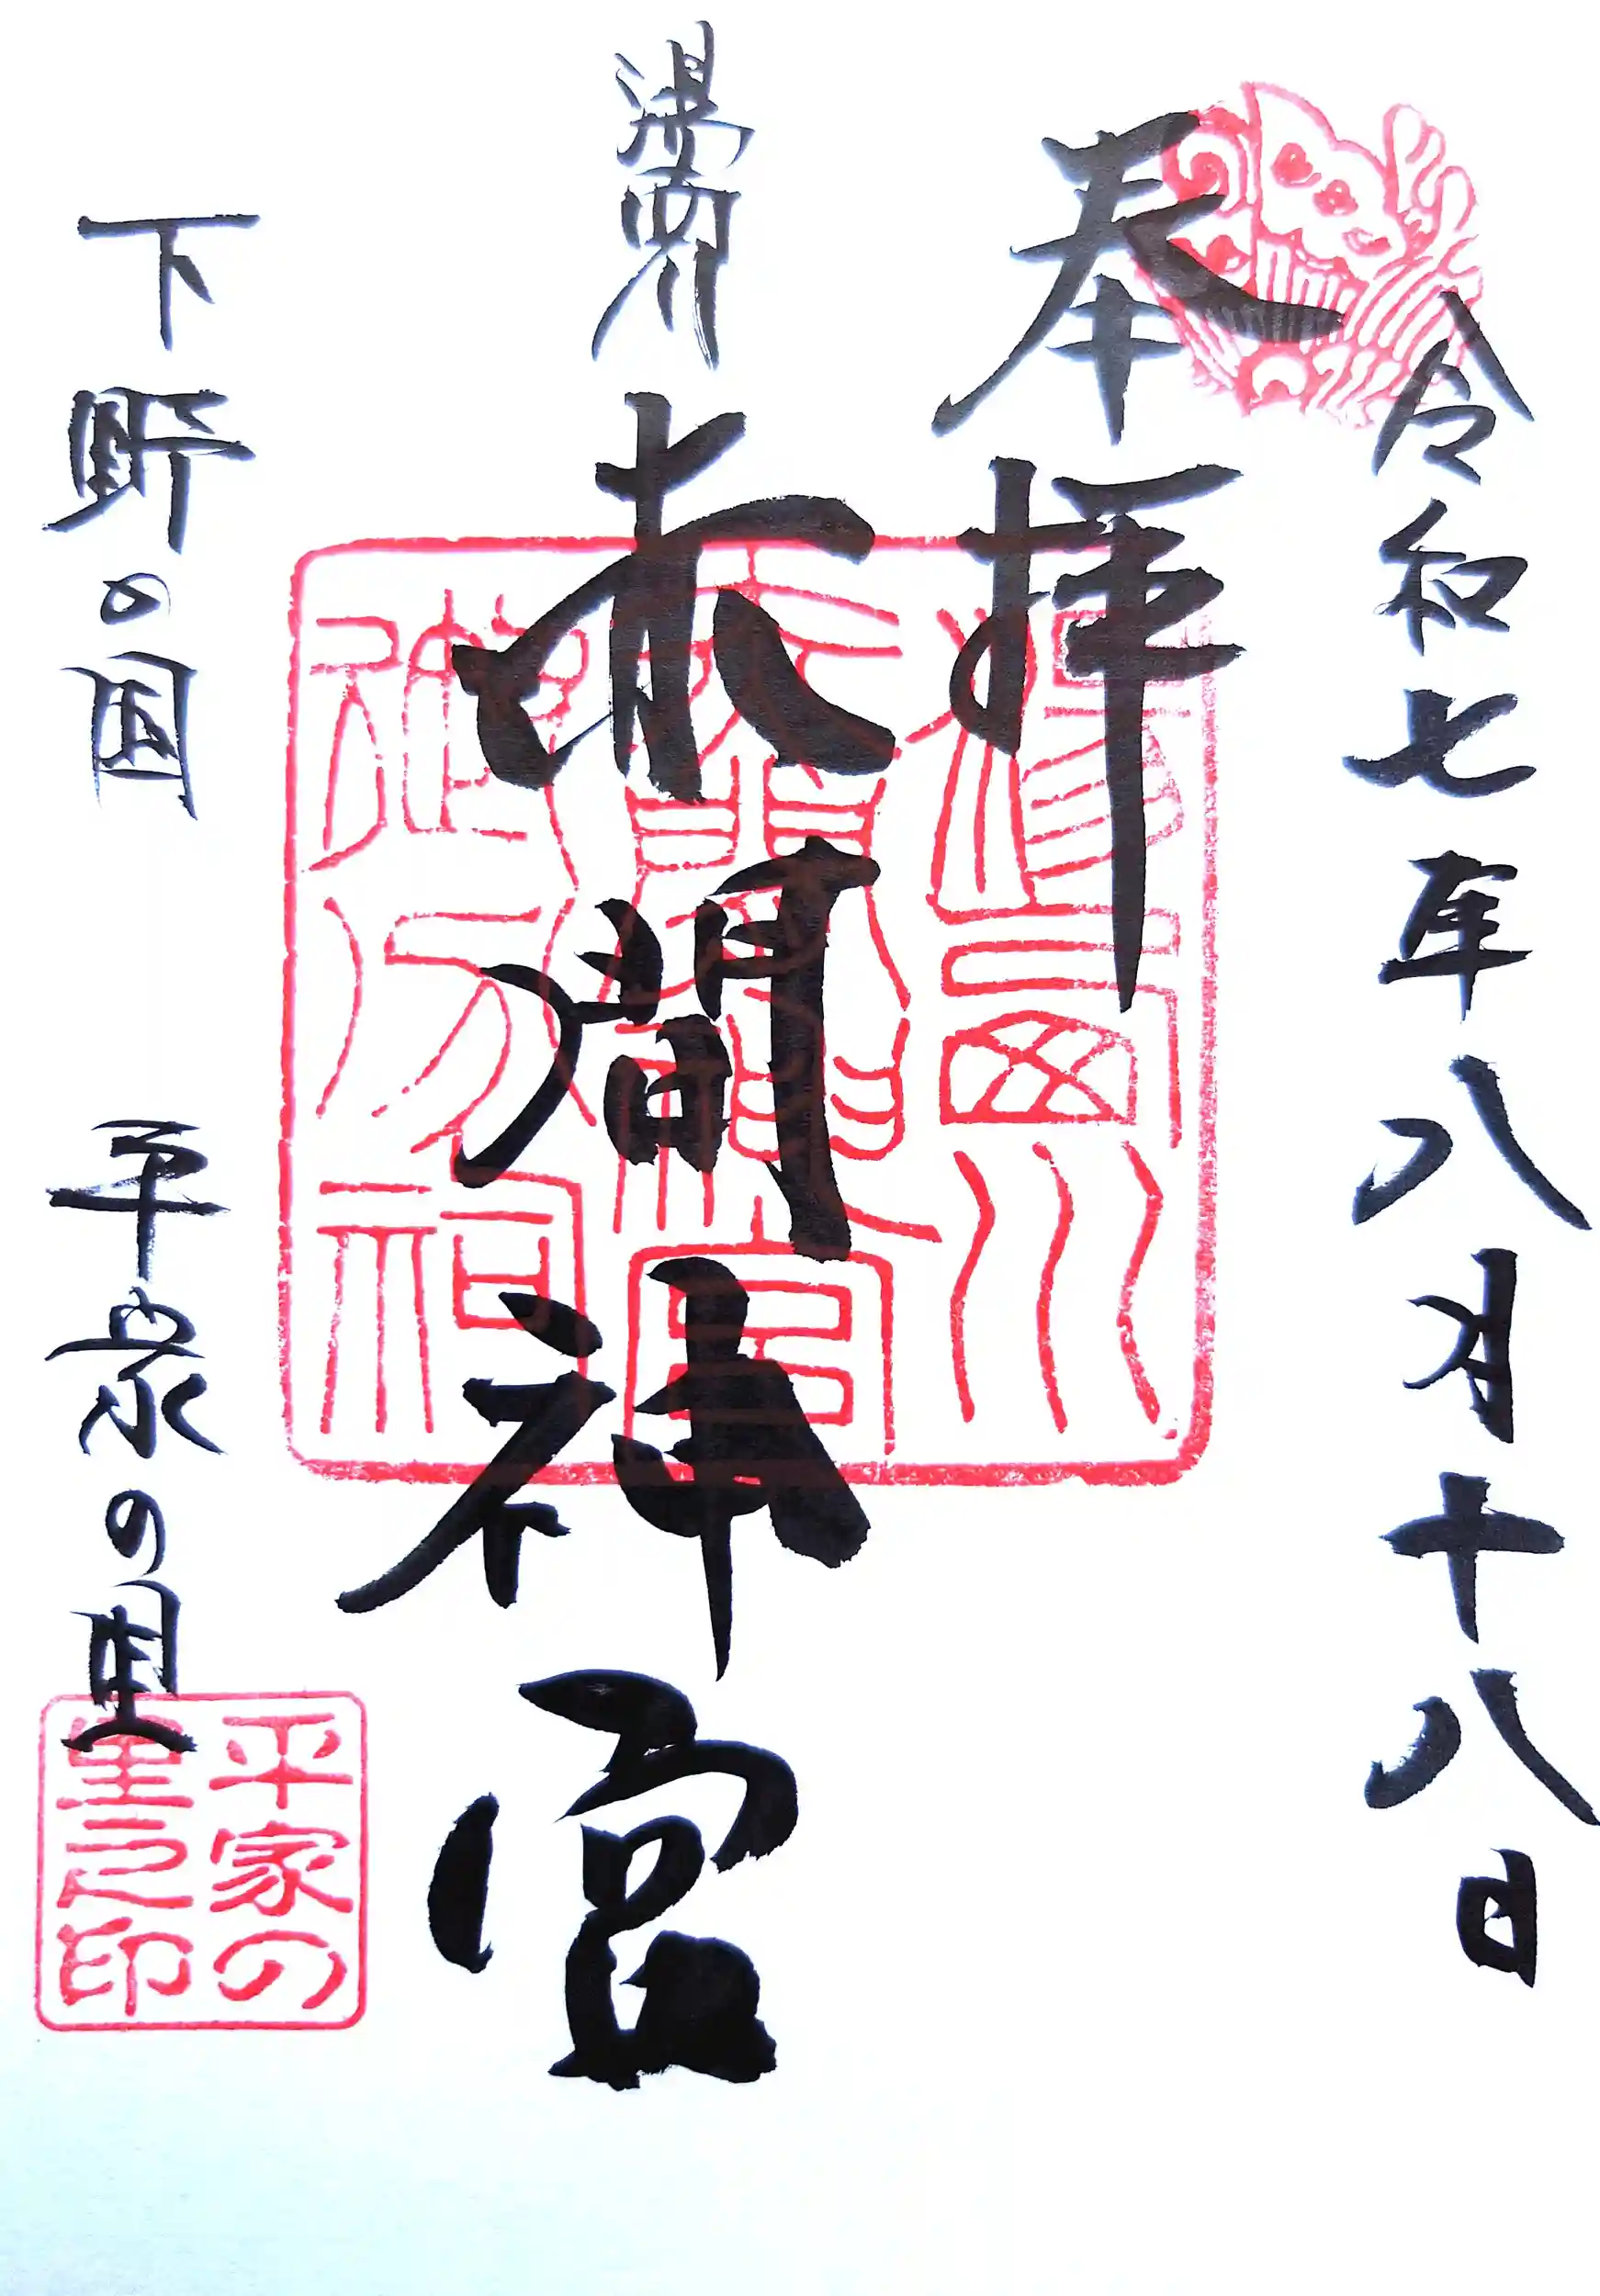 令和七年八月十八日
奉拝
湯西川
赤間神宮
下野の国　平家の里
湯西川
赤間神宮
御分祠
平家の
里之印